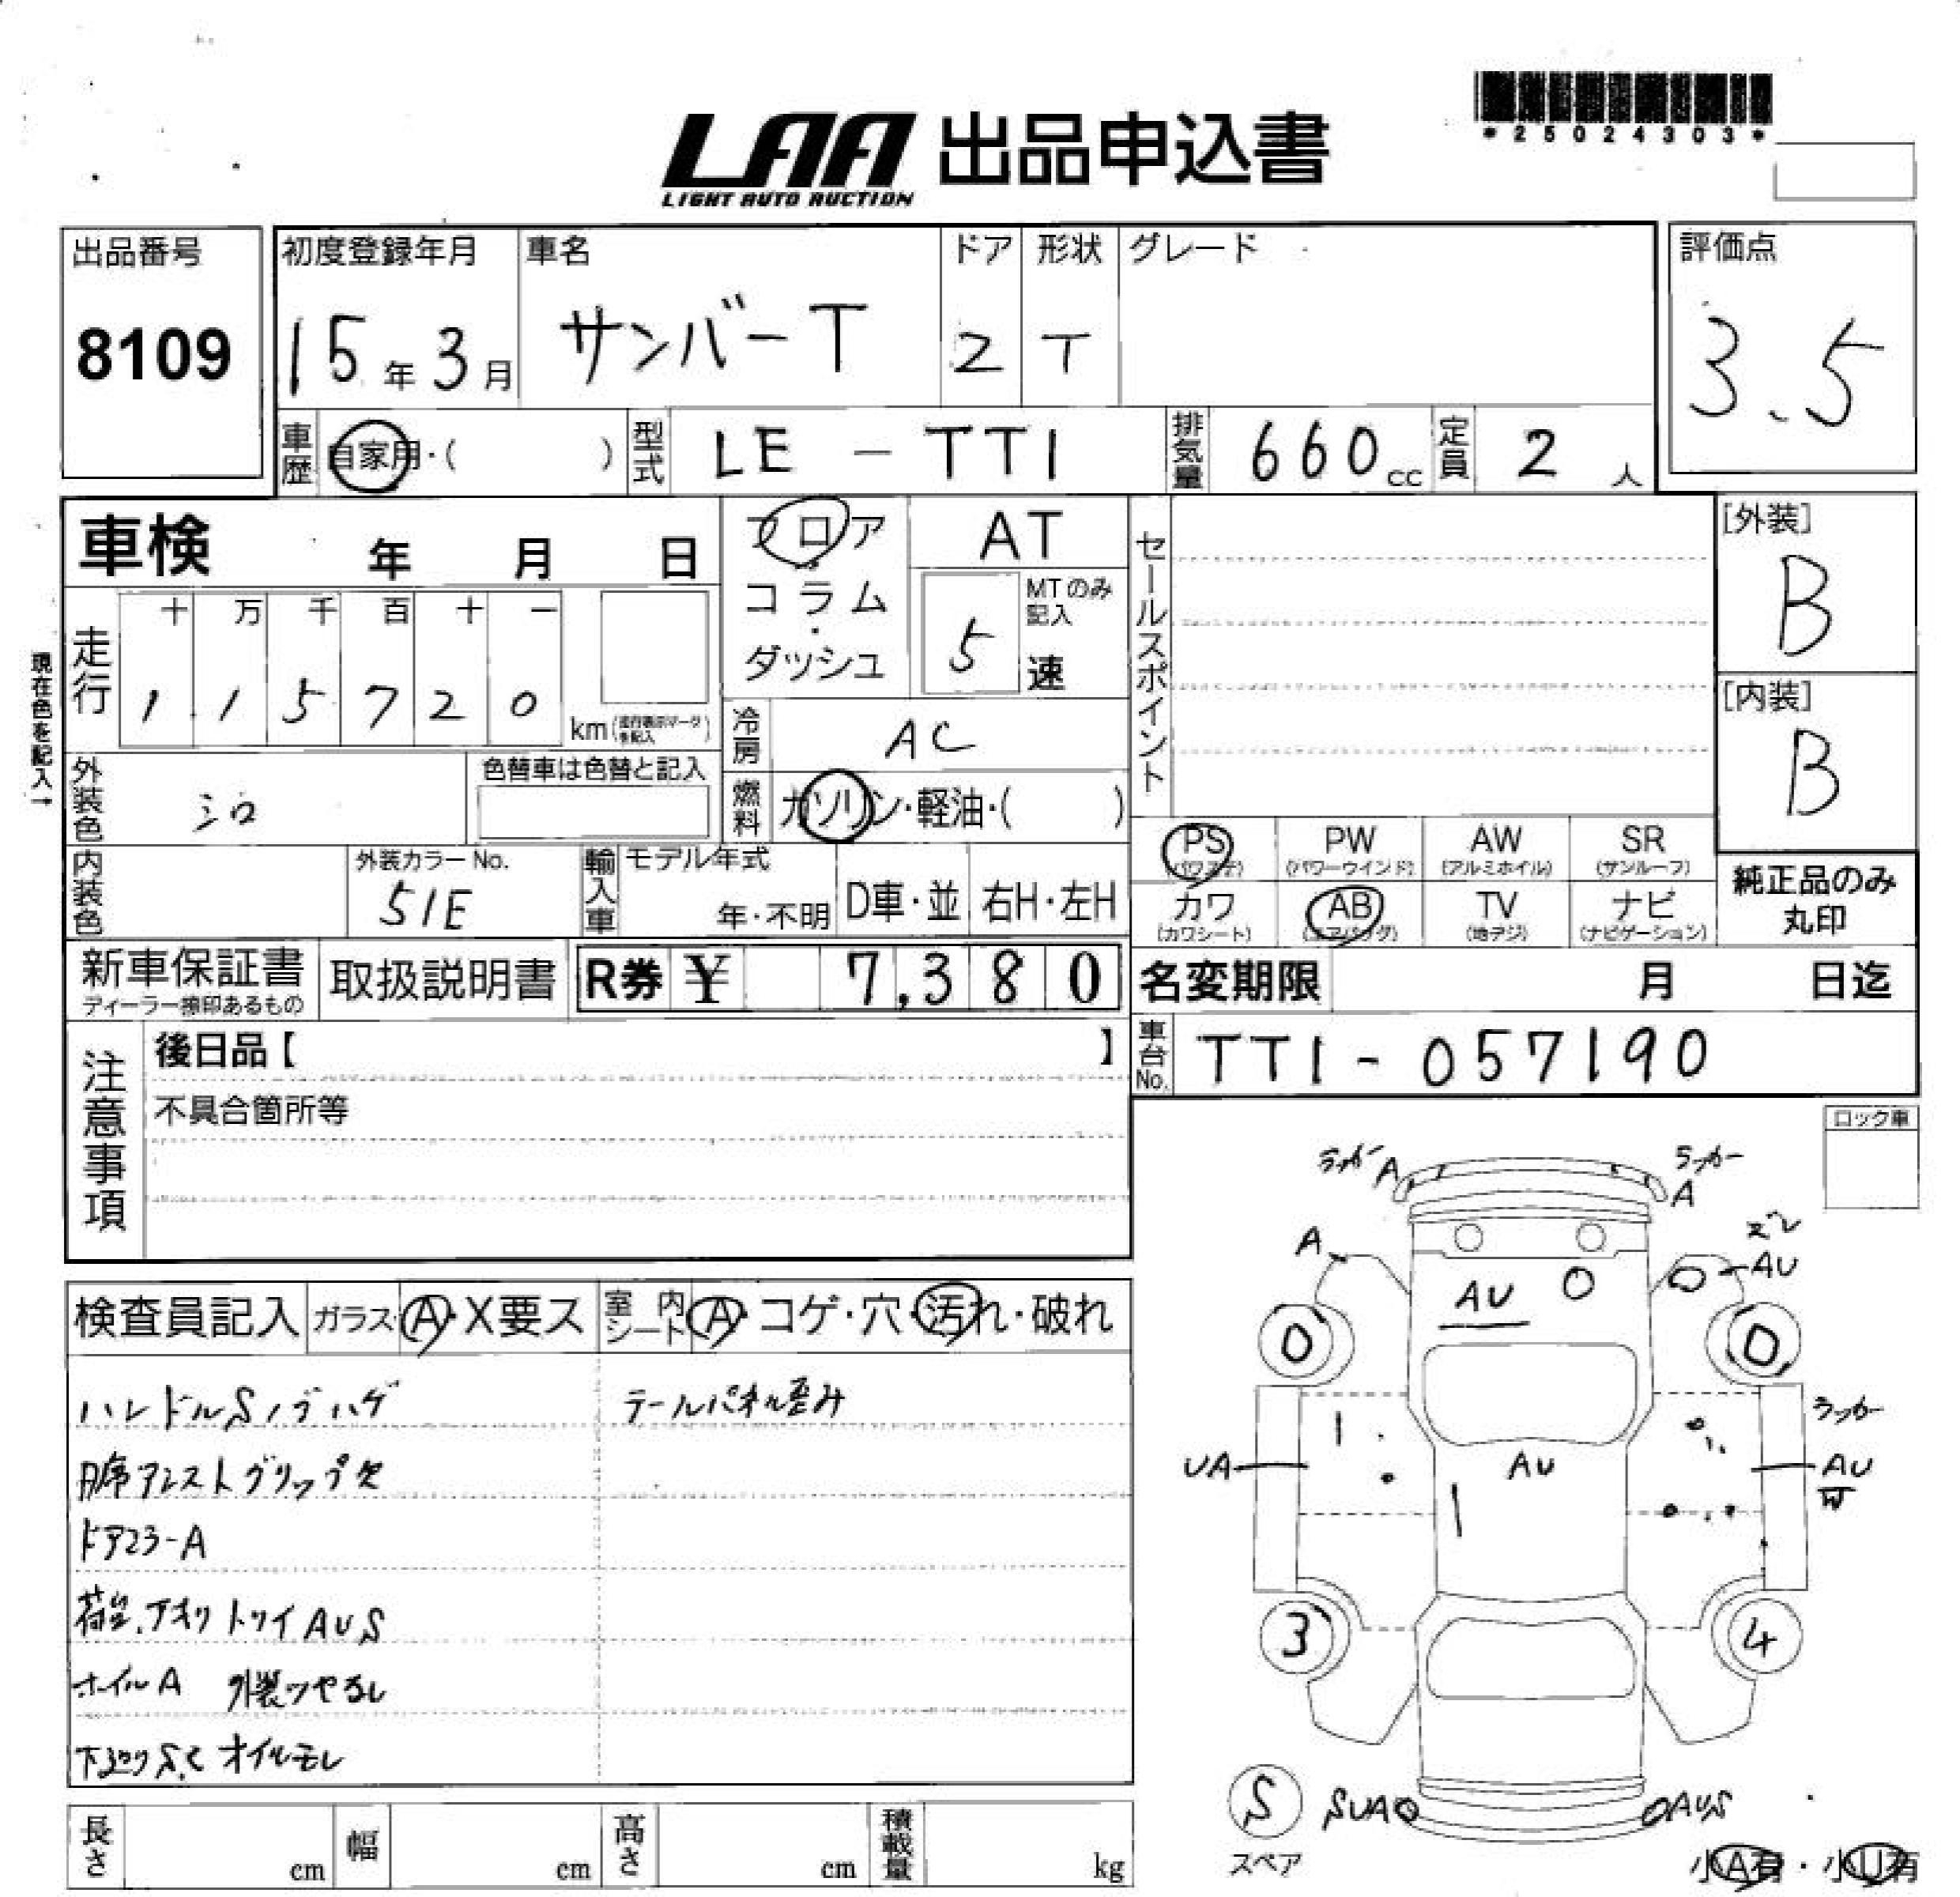 LAA 出品申込書
LIGHT AUTO AUCTION
*25024303*
出品番号
8109
初度登録年月
15年3月
車名
サンバーT
ドア
2
形状
T
グレード
評価点
3.5
車歴 自家用・( )
型式 LE-TT1
排気量 660cc
定員 2人
車検 年 月 日
フロア
コラム
・
ダッシュ
AT
MTのみ記入
5速
セールスポイント
[外装]
B
[内装]
B
現在色を記入→
走行
十 万 千 百 十 一
1 1 5 7 2 0 km
冷房 AC
外装色 シロ
色替車は色替と記入
燃料 ガソリン・軽油・( )
内装色
外装カラーNo.
51E
輸入車
モデル年式
年・不明
D車・並
右H・左H
PS (パワステ)
PW (パワーウインド)
AW (アルミホイル)
SR (サンルーフ)
カワ (カワシート)
AB (エアバッグ)
TV (地デジ)
ナビ (ナビゲーション)
純正品のみ
丸印
新車保証書
取扱説明書
R券 ¥ 7,380
名変期限 月 日迄
車台No. TT1-057190
注意事項
後日品【 】
不具合箇所等
ロック車
検査員記入
ガラス A・X要ス
室内シート A・コゲ・穴・汚れ・破れ
ハンドルSノブハゲ
テールパネル歪み
アシストグリップ欠
荷台.アオリ トリイAUS
ホイルA 外装ツヤなし
オイルモレ
長さ cm
幅 cm
高さ cm
積載量 kg
ラッカー A
ラッカー
A
A
AU
AU
0
0
ラッカー
UA
AU
AU
3
4
S
スペア
SUA
AUS
小A有・小U有